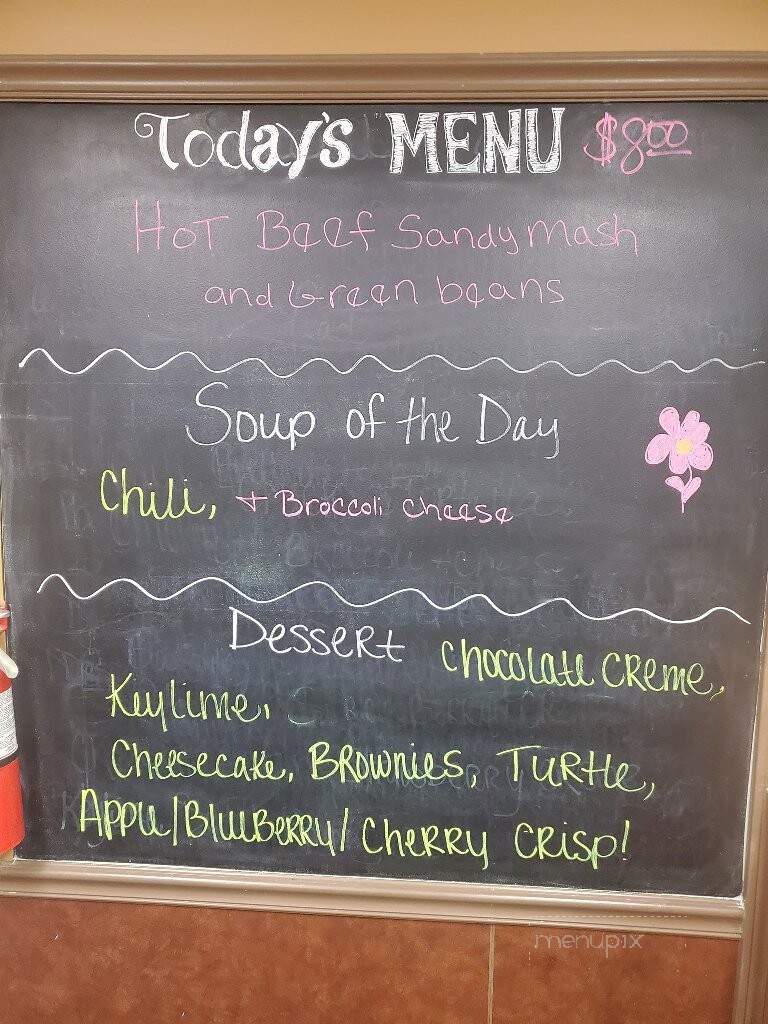 Today's MENU $8.00
Hot Beef Sandy mash
and Green beans
Soup of the Day
Chili, + Broccoli cheese
Dessert Chocolate Creme,
Keylime,
Cheesecake, Brownies, Turtle,
Apple/Blueberry/Cherry Crisp!
menupix